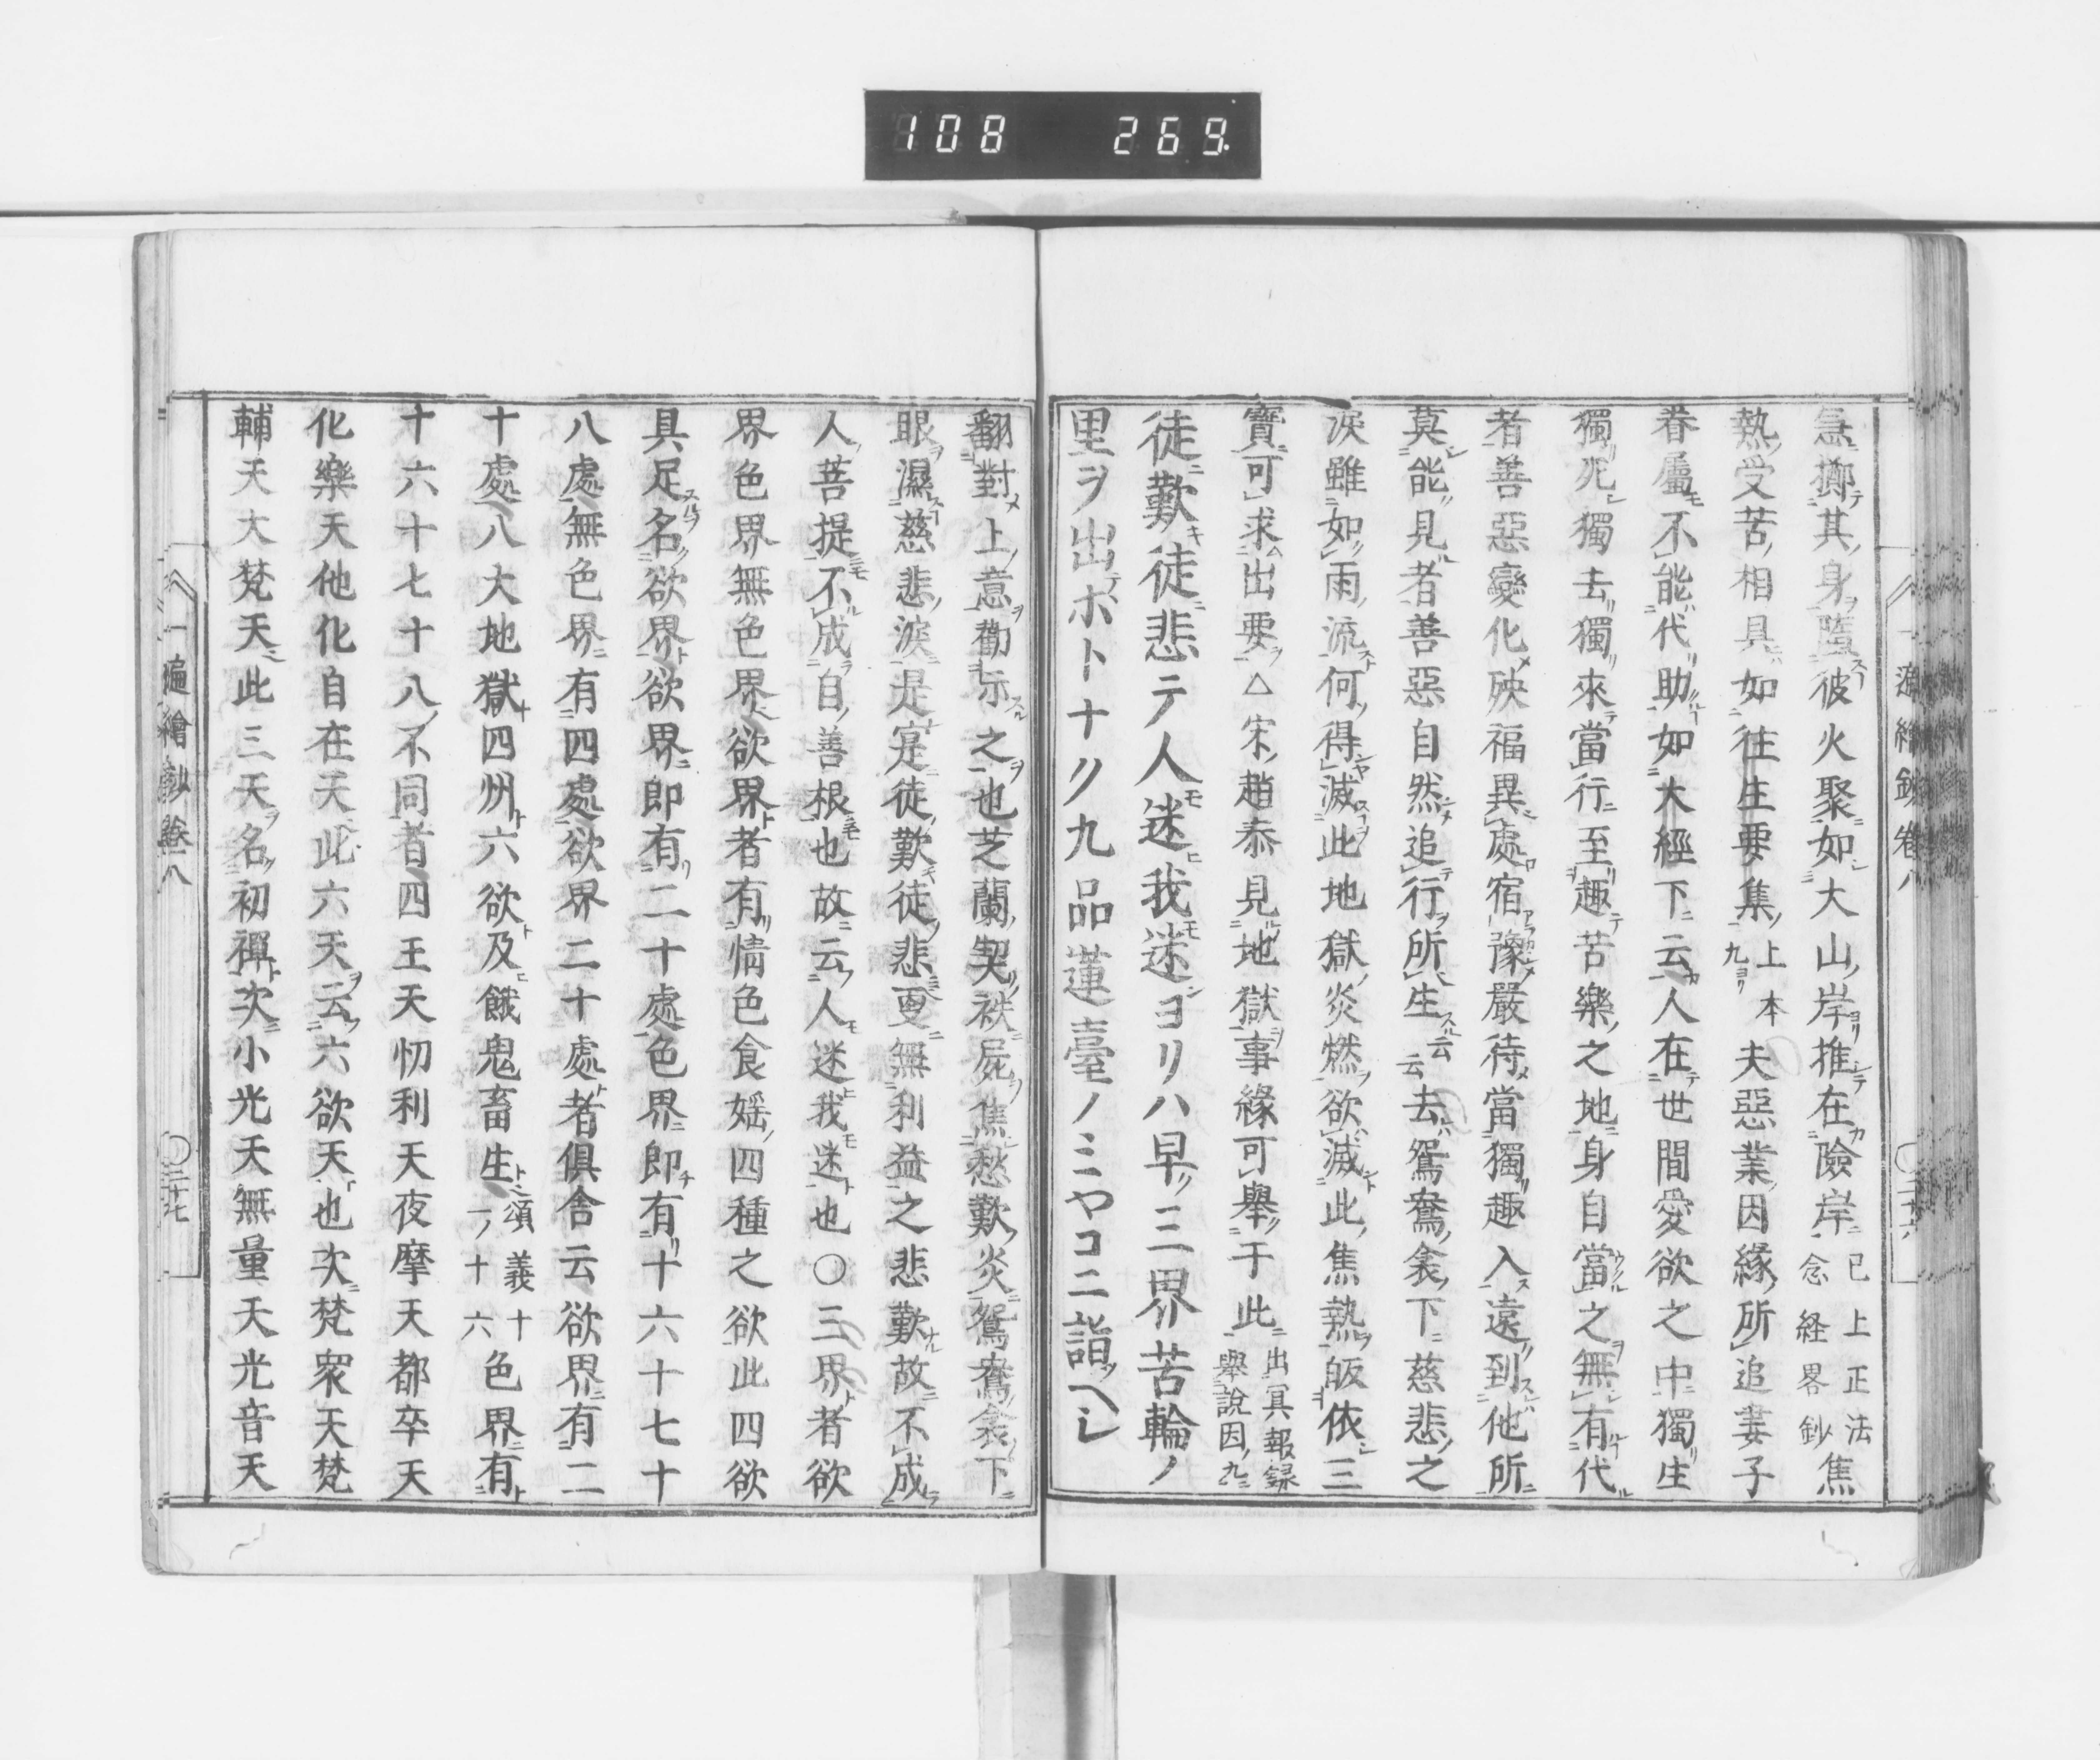 108 269
一遍繪鈔卷八 〇三十六
急擲其身墮彼火聚如大山岸推在險岸已上正法念経畧鈔焦
熱受苦相具如往生要集上本九夫惡業因緣所追妻子
眷屬不能代助如大經下云人在世間愛欲之中獨生
獨死獨去獨來當行至趣苦樂之地身自當之無有代
者善惡變化殃福異處宿豫嚴待當獨趣入遠到他所
莫能見者善惡自然追行所生云云去鴛鴦衾下慈悲之
淚雖如雨流何得滅此地獄炎燃欲滅此焦熱皈依三
寶可求出要△宋趙泰見地獄事緣可舉于此出冥報録舉說因九
徒歎キ徒悲テ人モ迷ヒ我モ迷シヨリハ早ク三界苦輪ノ
里ヲ出テホトナク九品蓮臺ノミヤコニ詣ツヘシ
翻對上意勸示之也芝蘭契袂屍焦愁歎炎鴛鴦衾下
眼濕慈悲淚是寔徒歎徒悲更無利益之悲歎故不成
人菩提不成自善根也故云人迷我迷也〇三界者欲
界色界無色界欲界者有情色食婬四種之欲此四欲
具足名欲界欲界即有二十處色界即有十六十七十
八處無色界有四處欲界二十處者俱舍云欲界有二
十處八大地獄四州六欲及餓鬼畜生頌義十一十六色界有
十六十七十八不同者四王天忉利天夜摩天都卒天
化樂天他化自在天此六天云六欲天也次梵衆天梵
輔天大梵天此三天名初禪次小光天無量天光音天
一遍繪鈔卷八 〇三十七